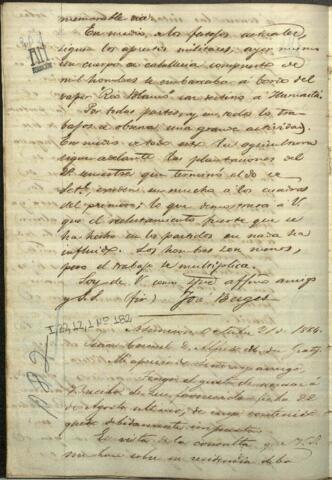 memorable vida.
En medio, a los fastos actuales,
siguen los aprestos militares, ayer mismo
un cuerpo de caballeria compuesto de
mil hombres se embarcaba a bordo del
vapor "Rio Blanco" con destino a Humaitá.
Por todas partes y en todos los tra-
bajos se observa una grande actividad.
En medio de todo esto la agricultura
sigue adelante, las plantaciones del
2º semestre que terminó el 30 de
Setb. exceden en mucho a las cuadras
del primero; lo que demostrara a V.
que el reclutamiento fuerte que se
ha hecho en los partidos en nada ha
influido. Los hombres son menos,
pero el trabajo se multiplica.
Soy de V. como siempre affmo amigo
y S.S. José Berges
I-22,12,1 Nº 182
Asuncion Octubre 21 de 1864.
Señor
Mi apreciado Señor y amigo.
Tengo el gusto de acusar a
V. recibo de su favorecida fecha 22
de Agosto ultimo, de cuyo contenido
quedo debidamente impuesto.
En vista de la consulta que V.S.
me hace sobre su residencia debo